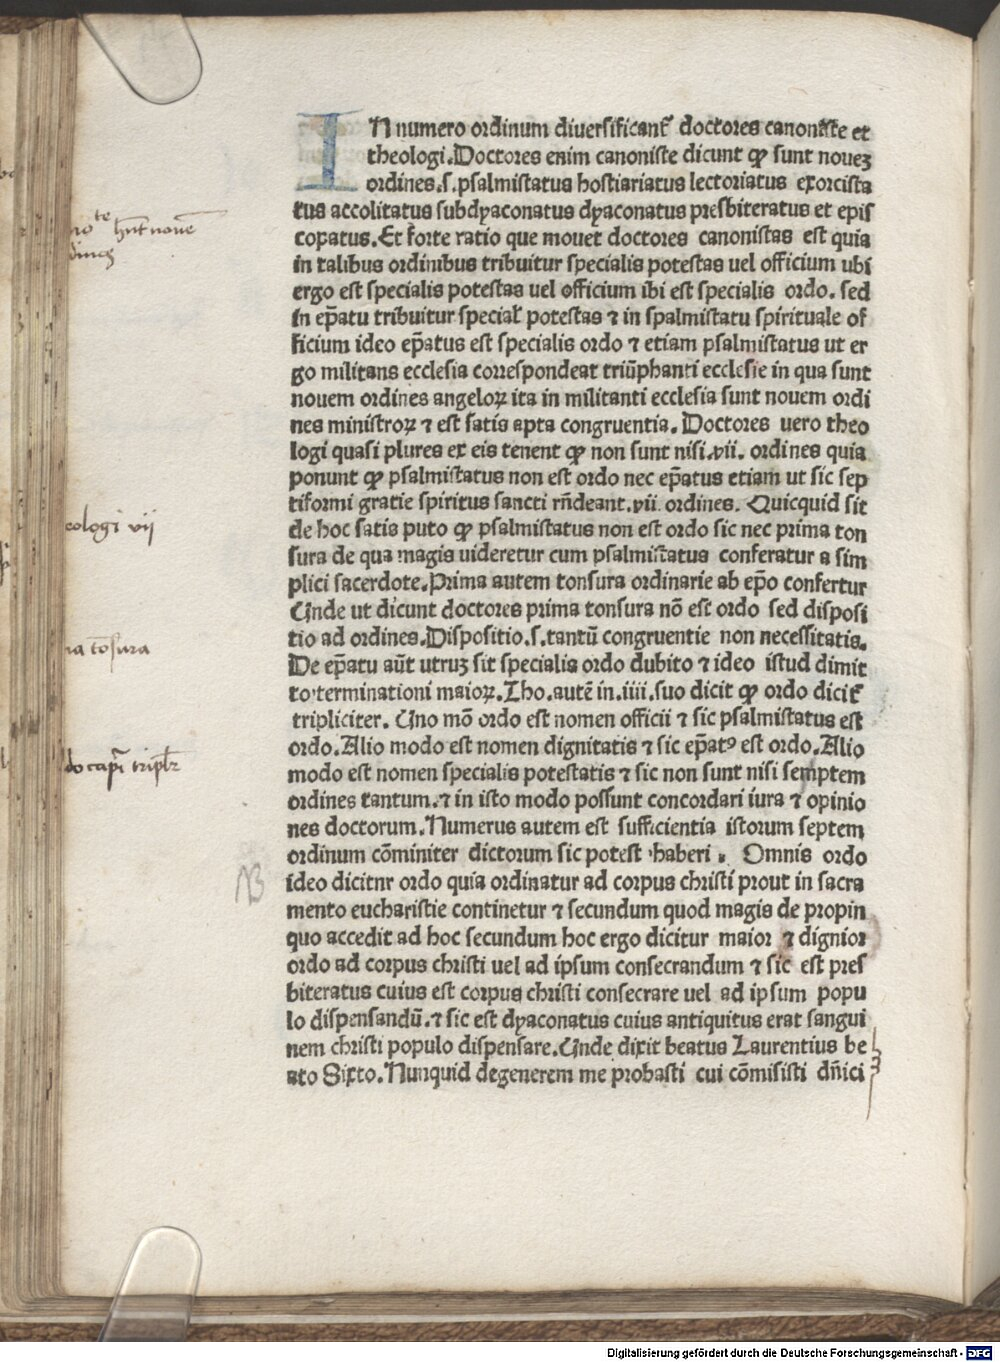 IN numero ordinum diuersificant᷑ doctores canoniste et
theologi. Doctores enim canoniste dicunt ꝙ sunt nouez
ordines .s. psalmistatus hostiariatus lectoriatus exorcista
tus accolitatus subdyaconatus dyaconatus presbiteratus et epis
copatus. Et forte ratio que mouet doctores canonistas est quia
in talibus ordinibus tribuitur specialis potestas uel officium ubi
ergo est specialis potestas uel officium ibi est specialis ordo. sed
in ep̄atu tribuitur special̓ potestas ⁊ in spalmistatu spirituale of
ficium ideo ep̄atus est specialis ordo ⁊ etiam psalmistatus ut er
go militans ecclesia correspondeat triūphanti ecclesie in qua sunt
nouem ordines angeloꝝ ita in militanti ecclesia sunt nouem ordi
nes ministroꝝ ⁊ est satis apta congruentia. Doctores uero theo
logi quasi plures ex eis tenent ꝙ non sunt nisi .vii. ordines quia
ponunt ꝙ psalmistatus non est ordo nec ep̄atus etiam ut sic sep
tiformi gratie spiritus sancti rn̄deant .vii. ordines. Quicquid sit
de hoc satis puto ꝙ psalmistatus non est ordo sic nec prima ton
sura de qua magis uideretur cum psalmistatus conferatur a sim
plici sacerdote. Prima autem tonsura ordinarie ab ep̄o confertur
Unde ut dicunt doctores prima tonsura nō est ordo sed disposi
tio ad ordines. Dispositio .s. tantū congruentie non necessitatis.
De ep̄atu aūt utruz sit specialis ordo dubito ⁊ ideo istud dimit
to terminationi maioꝝ. Tho. autē in .iiii. suo dicit ꝙ ordo dicit᷑
tripliciter. Uno mō ordo est nomen officii ⁊ sic psalmistatus est
ordo. Alio modo est nomen dignitatis ⁊ sic ep̄atꝰ est ordo. Alio
modo est nomen specialis potestatis ⁊ sic non sunt nisi semptem
ordines tantum. ⁊ in isto modo possunt concordari iura ⁊ opinio
nes doctorum. Numerus autem est sufficientia istorum septem
ordinum cōminiter dictorum sic potest haberi. Omnis ordo
ideo dicitnr ordo quia ordinatur ad corpus christi prout in sacra
mento eucharistie continetur ⁊ secundum quod magis de propin
quo accedit ad hoc secundum hoc ergo dicitur maior ⁊ dignior
ordo ad corpus christi uel ad ipsum consecrandum ⁊ sic est pres
biteratus cuius est corpus christi consecrare uel ad ipsum popu
lo dispensandū. ⁊ sic est dyaconatus cuius antiquitus erat sangui
nem christi populo dispensare. Unde dixit beatus Laurentius be
ato Sixto. Nunquid degenerem me probasti cui cōmisisti dn̄ici
hn̄t nouē
eologi vii
tōsura
NB
Digitalisierung gefördert durch die Deutsche Forschungsgemeinschaft - DFG